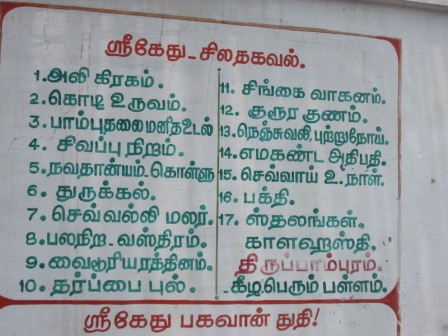 ஸ்ரீகேது - சிலதகவல்.
1. அலி கிரகம்.
2. கொடி உருவம்.
3. பாம்புதலை மனித உடல்
4. சிவப்பு நிறம்.
5. நவதான்யம் - கொள்ளு
6. துருக்கல்.
7. செவ்வல்லி மலர்.
8. பலநிற - வஸ்திரம்.
9. வைடூரியரத்தினம்.
10. தர்ப்பை புல்.
11. சிங்கை வாகனம்.
12. குரூர குணம்.
13. நெஞ்சுவலி, புற்றுநோய்.
14. எமகண்ட அதிபதி.
15. செவ்வாய் உ. நாள்.
16. பக்தி.
17. ஸ்தலங்கள்.
காளஹஸ்தி.
திருப்பாம்புரம்.
கீழபெரும் பள்ளம்.
ஸ்ரீகேது பகவான் துதி!